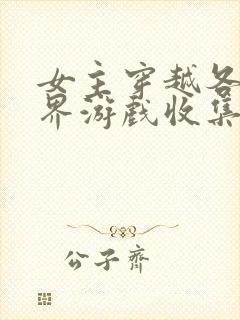 女主穿越各
界游戏收集
公子齐